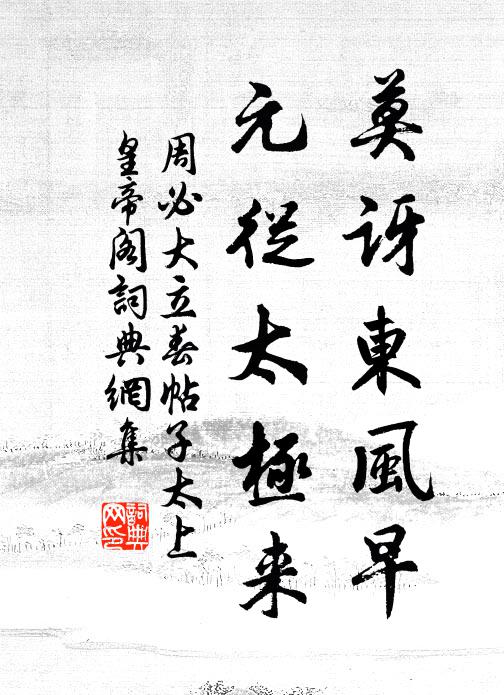 莫訝東風早
元從太極来
周必大立春帖子太上
皇帝阁詞典網集
詞典
网印